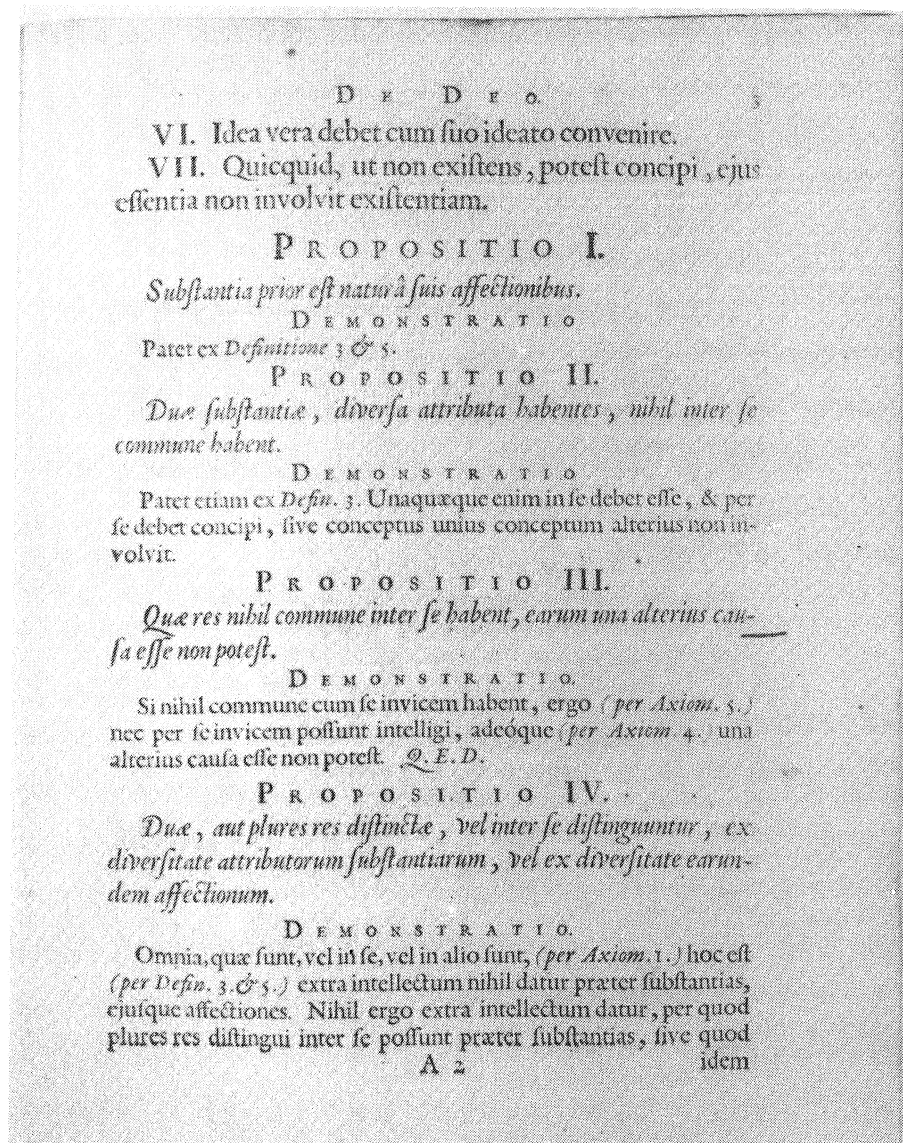 DE DEO. 3
VI. Idea vera debet cum ſuo ideato convenire.
VII. Quicquid, ut non exiſtens, poteſt concipi, ejus
eſſentia non involvit exiſtentiam.
PROPOSITIO I.
Subſtantia prior eſt naturâ ſuis affectionibus.
DEMONSTRATIO
Patet ex Definitione 3 & 5.
PROPOSITIO II.
Duæ ſubſtantiæ, diverſa attributa habentes, nihil inter ſe
commune habent.
DEMONSTRATIO
Patet etiam ex Defin. 3. Unaquæque enim in ſe debet eſſe, & per
ſe debet concipi, ſive conceptus unius conceptum alterius non in-
volvit.
PROPOSITIO III.
Quæ res nihil commune inter ſe habent, earum una alterius cau-
ſa eſſe non poteſt.
DEMONSTRATIO.
Si nihil commune cum ſe invicem habent, ergo (per Axiom. 5.)
nec per ſe invicem poſſunt intelligi, adeóque (per Axiom. 4.) una
alterius cauſa eſſe non poteſt. Q. E. D.
PROPOSITIO IV.
Duæ, aut plures res diſtinctæ, vel inter ſe diſtinguuntur, ex
diverſitate attributorum ſubſtantiarum, vel ex diverſitate earun-
dem affectionum.
DEMONSTRATIO.
Omnia, quæ ſunt, vel in ſe, vel in alio ſunt, (per Axiom. 1.) hoc eſt
(per Defin. 3. & 5.) extra intellectum nihil datur præter ſubſtantias,
ejuſque affectiones. Nihil ergo extra intellectum datur, per quod
plures res diſtingui inter ſe poſſunt præter ſubſtantias, ſive quod
A 2 idem